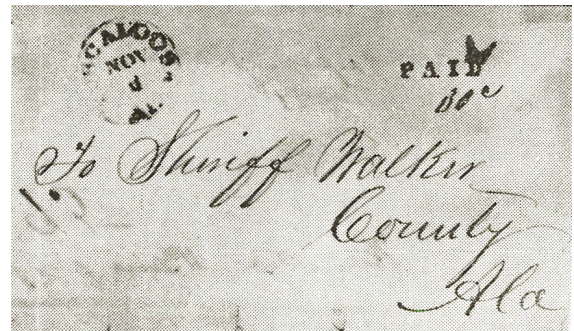 CALOOS
NOV
Al.
PAID
To Sheriff Walker
County
Ala